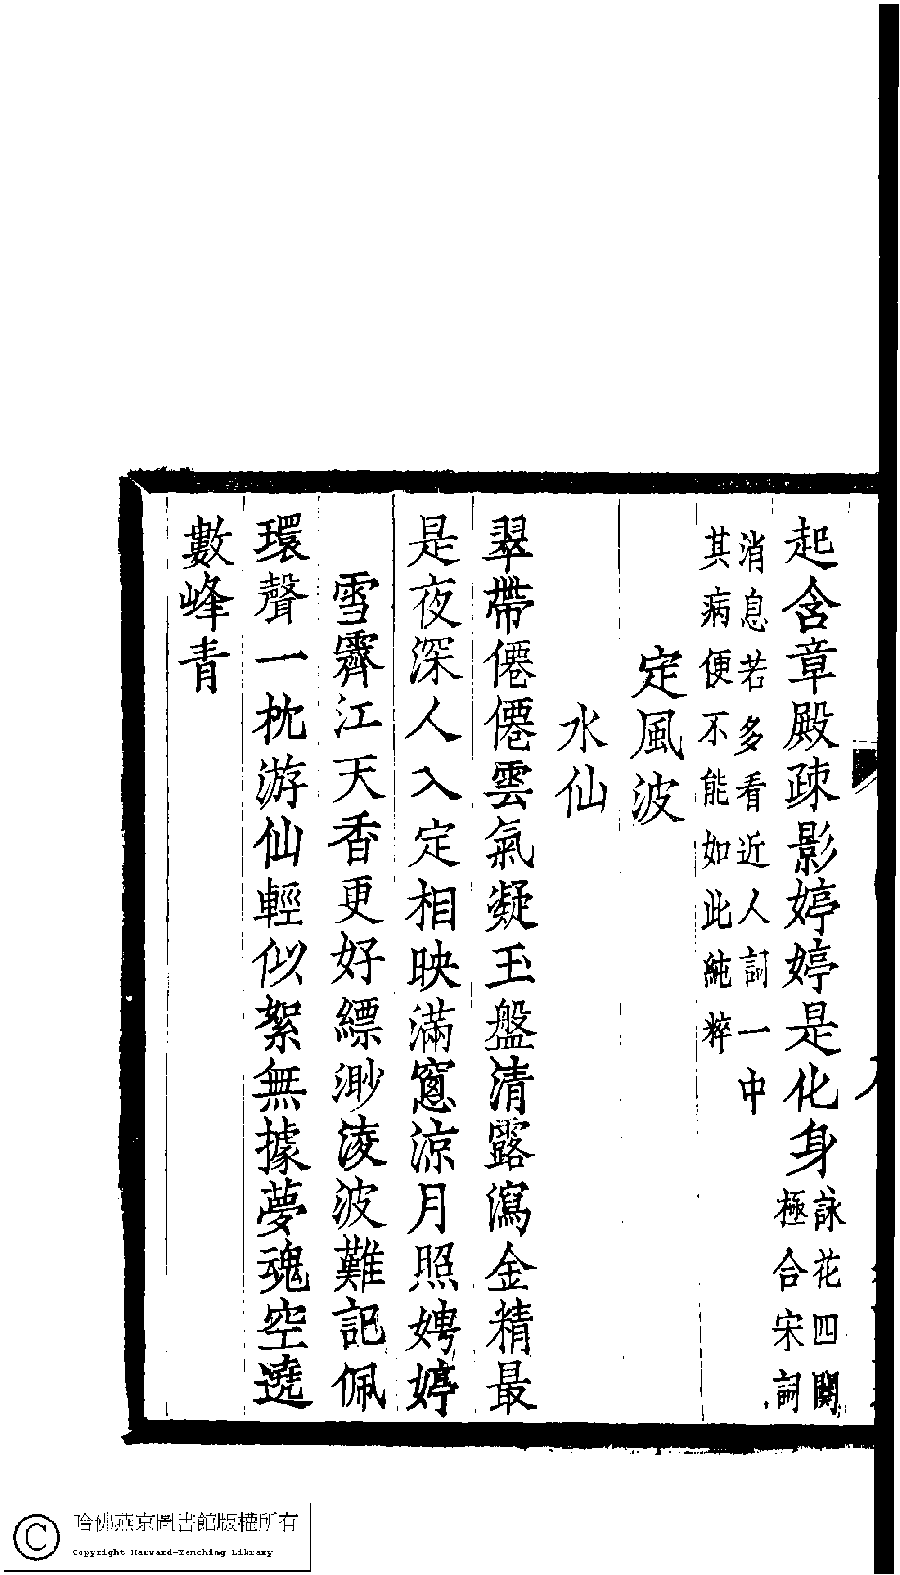 起含章殿疎影婷婷是化身詠花四闋極合宋詞
消息若多看近人詞一中
其病便不能如此純粹
定風波
水仙
翠帶僊僊雲氣凝玉盤清露瀉金精最
是夜深人入定相映滿窻涼月照娉婷
雪霽江天香更好縹渺淩波難記佩
環聲一枕游仙輕似絮無據夢魂空遶
數峰青
哈佛燕京圖書館版權所有
Copyright Harvard-Yenching Library